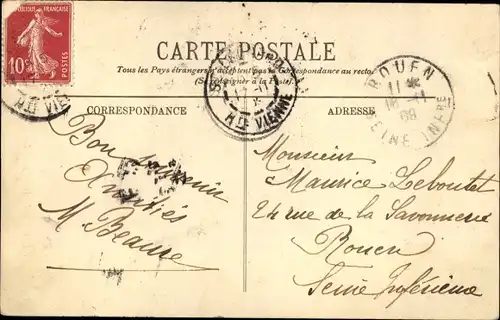 RÉPUBLIQUE FRANÇAISE
10c
CARTE POSTALE
Tous les Pays étrangers n'acceptent pas la Correspondance au recto
(Se renseigner à la Poste)
HTE VIENNE
ROUEN
11
18 - 11
08
SEINE INFRE
HTE VIENNE
CORRESPONDANCE
ADRESSE
Bon souvenir
Amitiés
M Beaure
Monsieur
Maurice Leboutet
24 rue de la Savonnerie
Rouen
Seine Inférieure